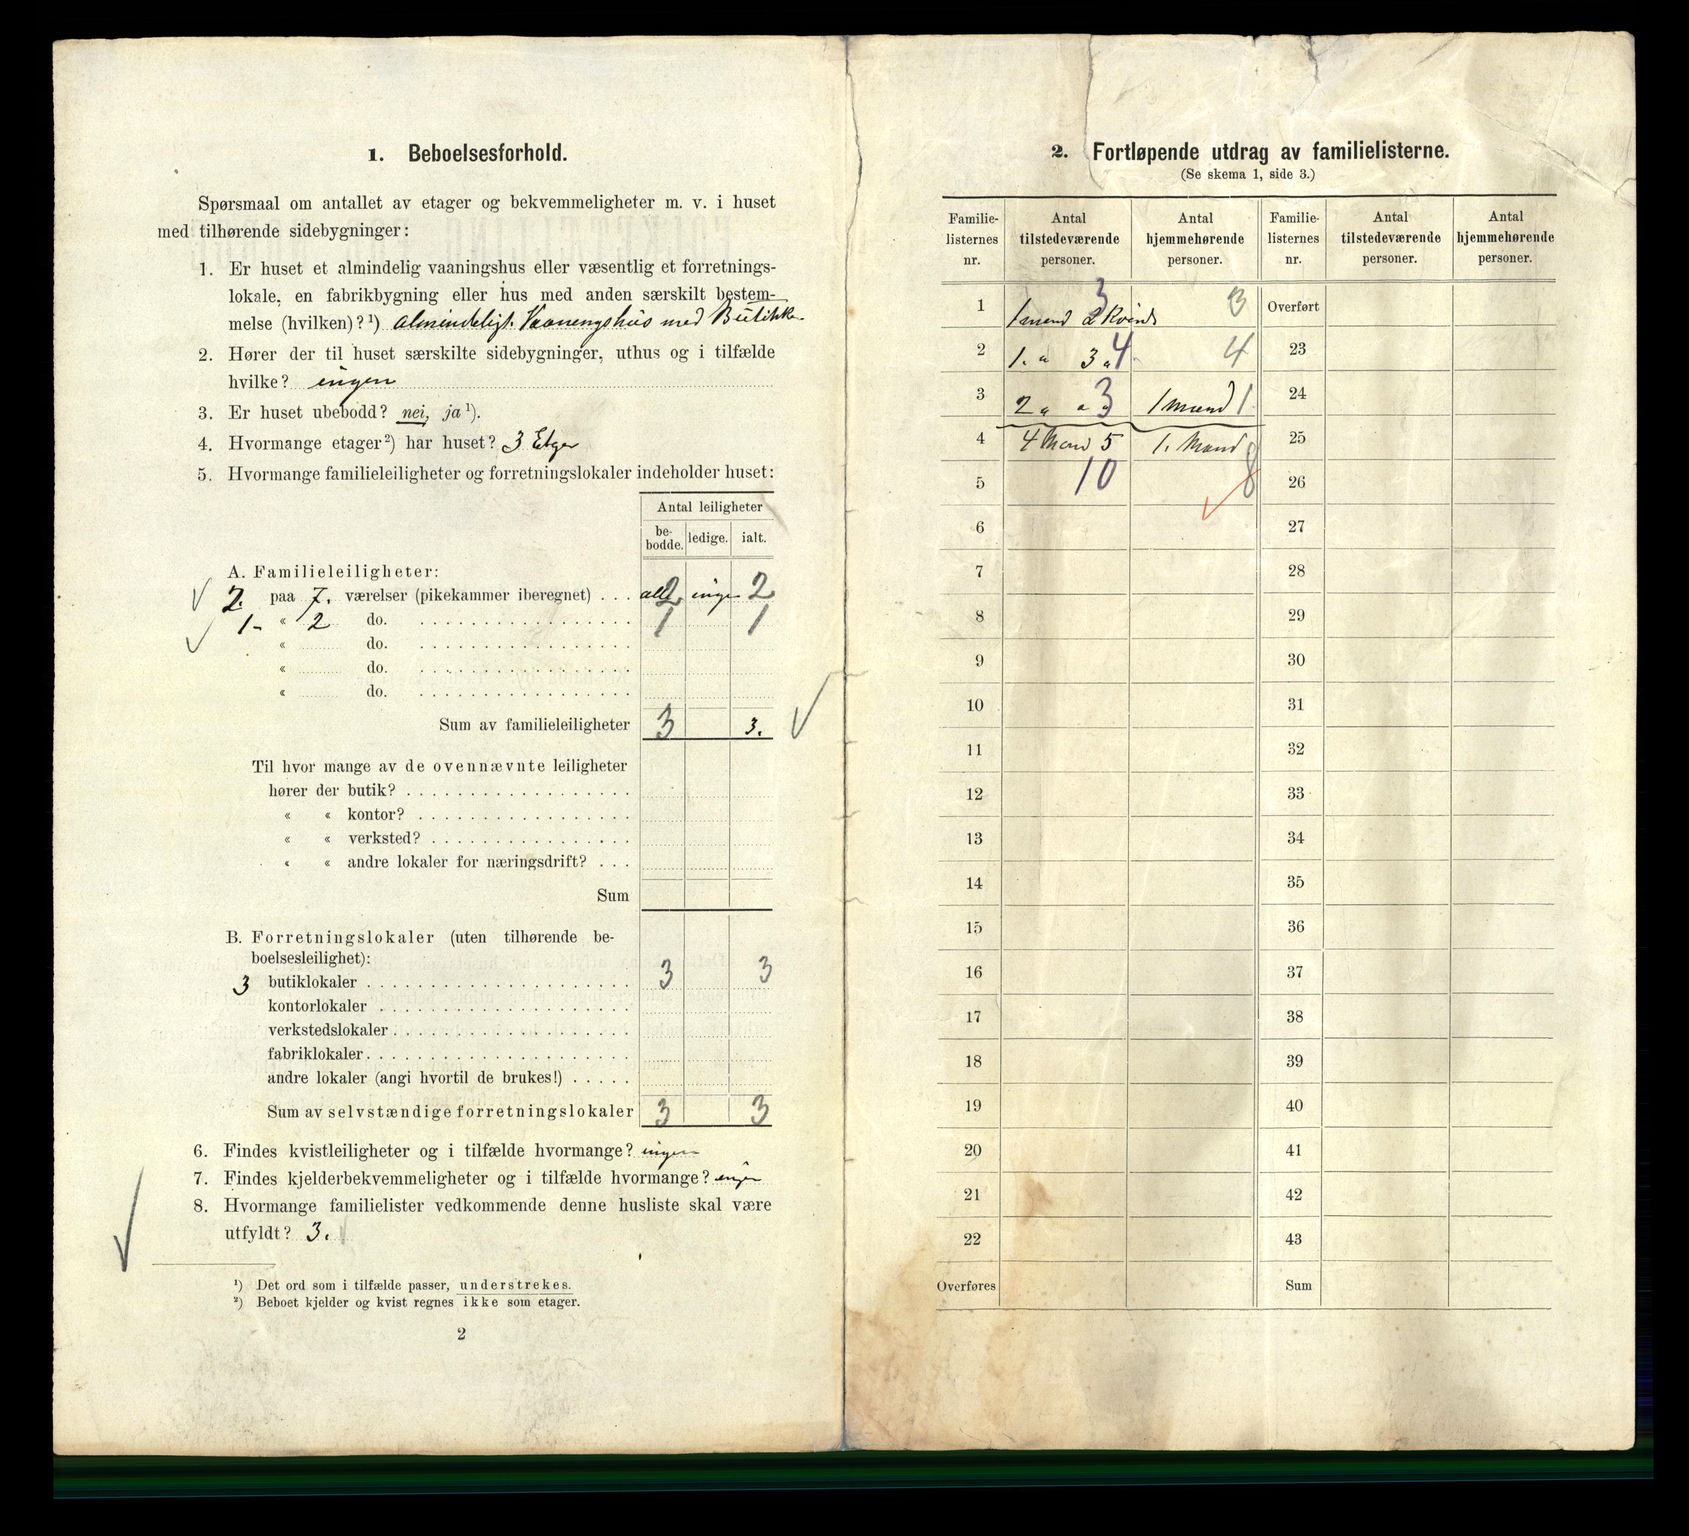 1. Beboelsesforhold.
Spørsmaal om antallet av etager og bekvemmeligheter m. v. i huset
med tilhørende sidebygninger:
1. Er huset et almindelig vaaningshus eller væsentlig et forretnings-
lokale, en fabrikbygning eller hus med anden særskilt bestem-
melse (hvilken)?¹) almindeligt. Vaaningshus med Butikker
2. Hører der til huset særskilte sidebygninger, uthus og i tilfælde
hvilke? ingen
3. Er huset ubebodd? nei, ja¹).
4. Hvormange etager²) har huset? 3 Etger
5. Hvormange familieleiligheter og forretningslokaler indeholder huset:
Antal leiligheter
be-bodde. ledige. ialt.
A. Familieleiligheter:
2. paa 7. værelser (pikekammer iberegnet) . . . alle 2 ingen 2
1 - « 2 do. 1 1
« do.
« do.
« do.
Sum av familieleiligheter 3 3.
Til hvor mange av de ovennævnte leiligheter
hører der butik?
« « kontor?
« « verksted?
« « andre lokaler for næringsdrift?
Sum
B. Forretningslokaler (uten tilhørende be-
boelsesleilighet):
3 butiklokaler 3 3
kontorlokaler
verkstedslokaler
fabriklokaler
andre lokaler (angi hvortil de brukes!)
Sum av selvstændige forretningslokaler 3 3
6. Findes kvistleiligheter og i tilfælde hvormange? ingen
7. Findes kjelderbekvemmeligheter og i tilfælde hvormange? ingen
8. Hvormange familielister vedkommende denne husliste skal være
utfyldt? 3.
¹) Det ord som i tilfælde passer, understrekes.
²) Beboet kjelder og kvist regnes ikke som etager.
2
2. Fortløpende utdrag av familielisterne.
(Se skema 1, side 3.)
Familie-listernes nr. Antal tilstedeværende personer. Antal hjemmehørende personer. Familie-listernes nr. Antal tilstedeværende personer. Antal hjemmehørende personer.
1 1 mand 2 Kvind 3 3 Overført
2 1. " 3 " 4 4 23
3 2 " " " 3 1 mand 1 24
4 4 Mand 5 1. Mand 25
5 10 8 26
6 27
7 28
8 29
9 30
10 31
11 32
12 33
13 34
14 35
15 36
16 37
17 38
18 39
19 40
20 41
21 42
22 43
Overføres Sum